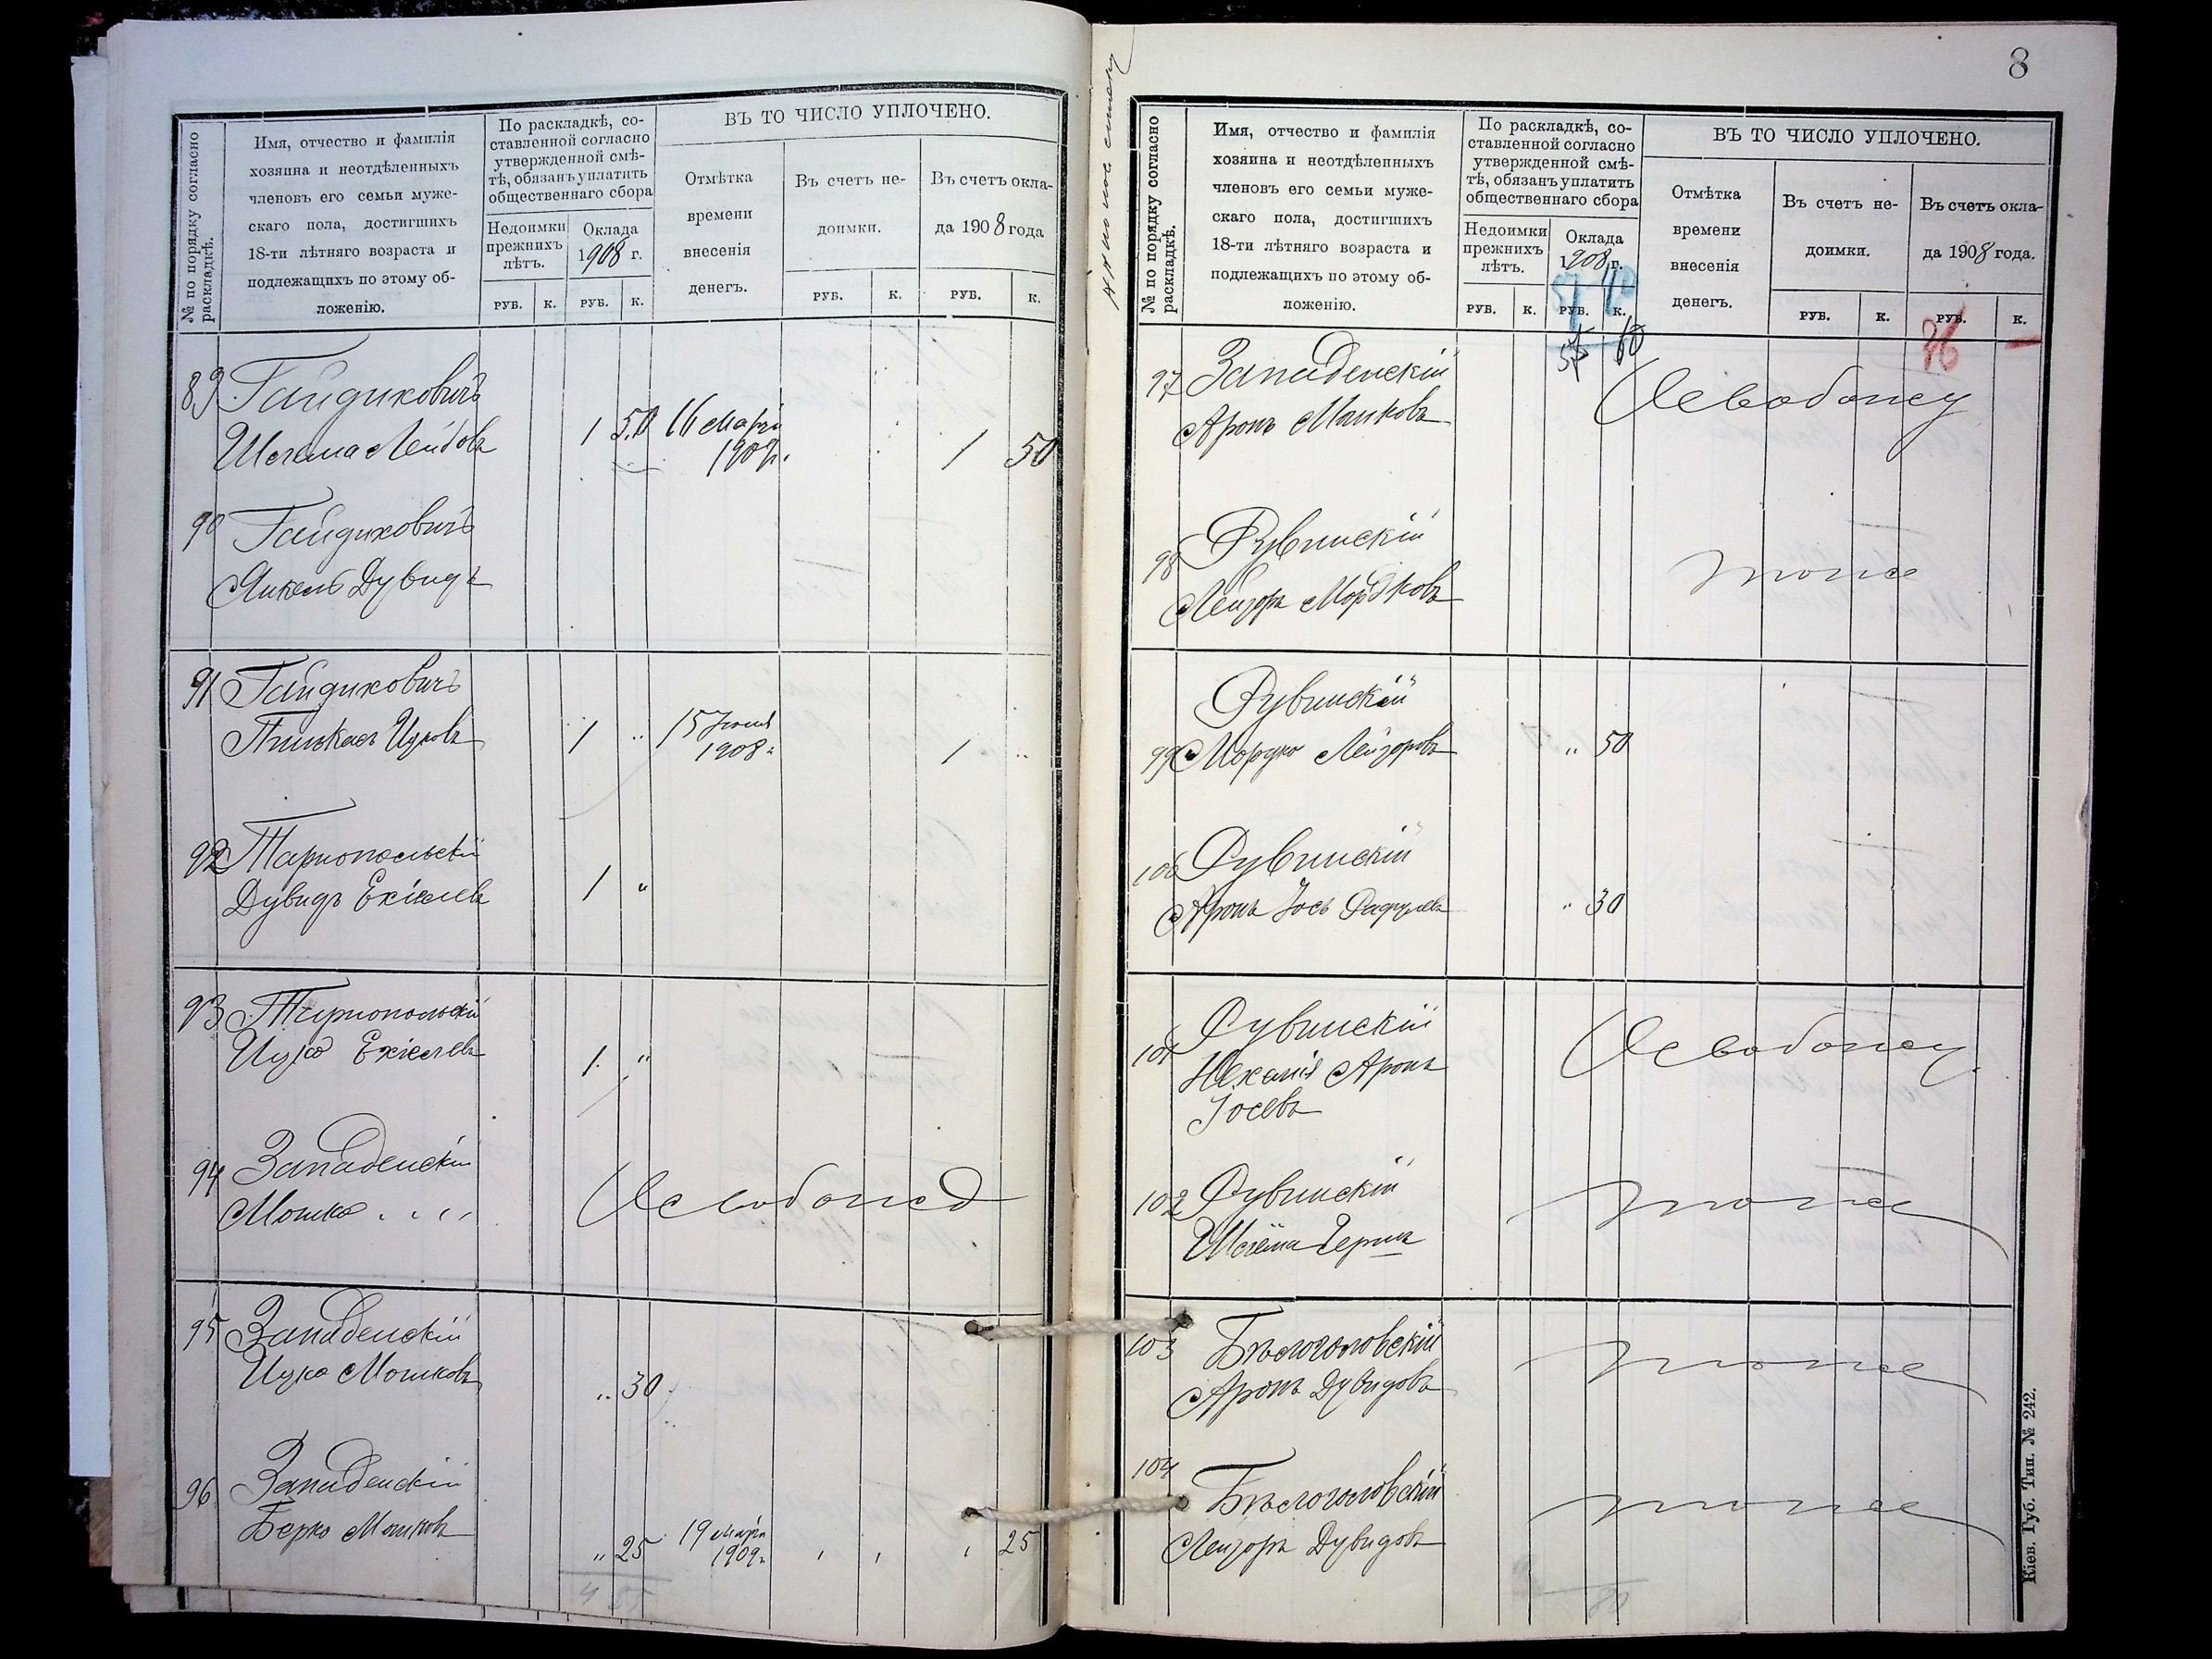 № по порядку согласно
раскладкѣ.
Имя, отчество и фамилія
хозяина и неотдѣленныхъ
членовъ его семьи муже-
скаго пола, достигшихъ
18-ти лѣтняго возраста и
подлежащихъ по этому об-
ложенію.
По раскладкѣ, со-
ставленной согласно
утвержденной смѣ-
тѣ, обязанъ уплатить
общественнаго сбора
Недоимки
прежнихъ
лѣтъ.
Оклада
1908 г.
РУБ. К. РУБ. К.
ВЪ ТО ЧИСЛО УПЛОЧЕНО.
Отмѣтка
времени
внесенія
денегъ.
Въ счетъ не-
доимки.
Въ счетъ окла-
да 1908 года
РУБ. К. РУБ. К.
89 Гайдиковичъ
Шлема Лейбовъ 1 50 16 Марта 1 50
90 Гайдиковичъ
Янкель Дувидъ
91 Гайдиковичъ
Пинькасъ Ицковъ 1 " 15 1908 г. 1 "
92 Тарнопольскій
Дувидъ Екіелевъ 1 "
93 Тарнопольскій
Ицко Екіелевъ 1 "
94 Западенскій
Мошко
95 Западенскій
Ицко Мошковъ " 30
96 Западенскій
Берко Мошковъ " 25 19 Марта 1909 г. 25
4 55
8
№ по порядку согласно
раскладкѣ.
Имя, отчество и фамилія
хозяина и неотдѣленныхъ
членовъ его семьи муже-
скаго пола, достигшихъ
18-ти лѣтняго возраста и
подлежащихъ по этому об-
ложенію.
По раскладкѣ, со-
ставленной согласно
утвержденной смѣ-
тѣ, обязанъ уплатить
общественнаго сбора
Недоимки
прежнихъ
лѣтъ.
Оклада
1908 г.
РУБ. К. РУБ. К.
ВЪ ТО ЧИСЛО УПЛОЧЕНО.
Отмѣтка
времени
внесенія
денегъ.
Въ счетъ не-
доимки.
Въ счетъ окла-
да 1908 года.
РУБ. К. РУБ. К.
97 Западенскій
Аронъ Мошковъ
98 Рувинскій
Лейзоръ Мордковъ тоже
Рувинскій
99 Мордко Лейзоровъ " 50
100 Рувинскій
Аронъ Іось " 30
101 Рувинскій
Аронъ
Іосевъ
102 Рувинскій
Шлема тоже
103 Бѣлоголовскій
Аронъ Дувидовъ тоже
104 Бѣлоголовскій
Лейзоръ Дувидовъ тоже
80
Кіев. Губ. Тип. № 242.